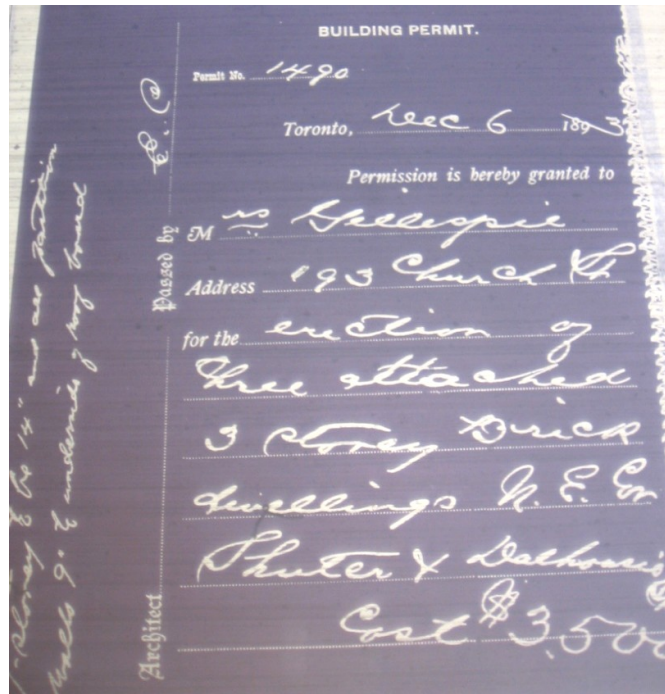 BUILDING PERMIT.
Permit No. 1490
Toronto, Dec 6 189
Permission is hereby granted to
Mrs Gillespie
Address 193 Church St
for the erection of
three attached
3 storey Brick
dwellings N. E. Cor
Shuter & Dalhousie St
Cost $3,500
Passed by
Architect
storey to be 14" and all partition
walls 9" to underside of roof board